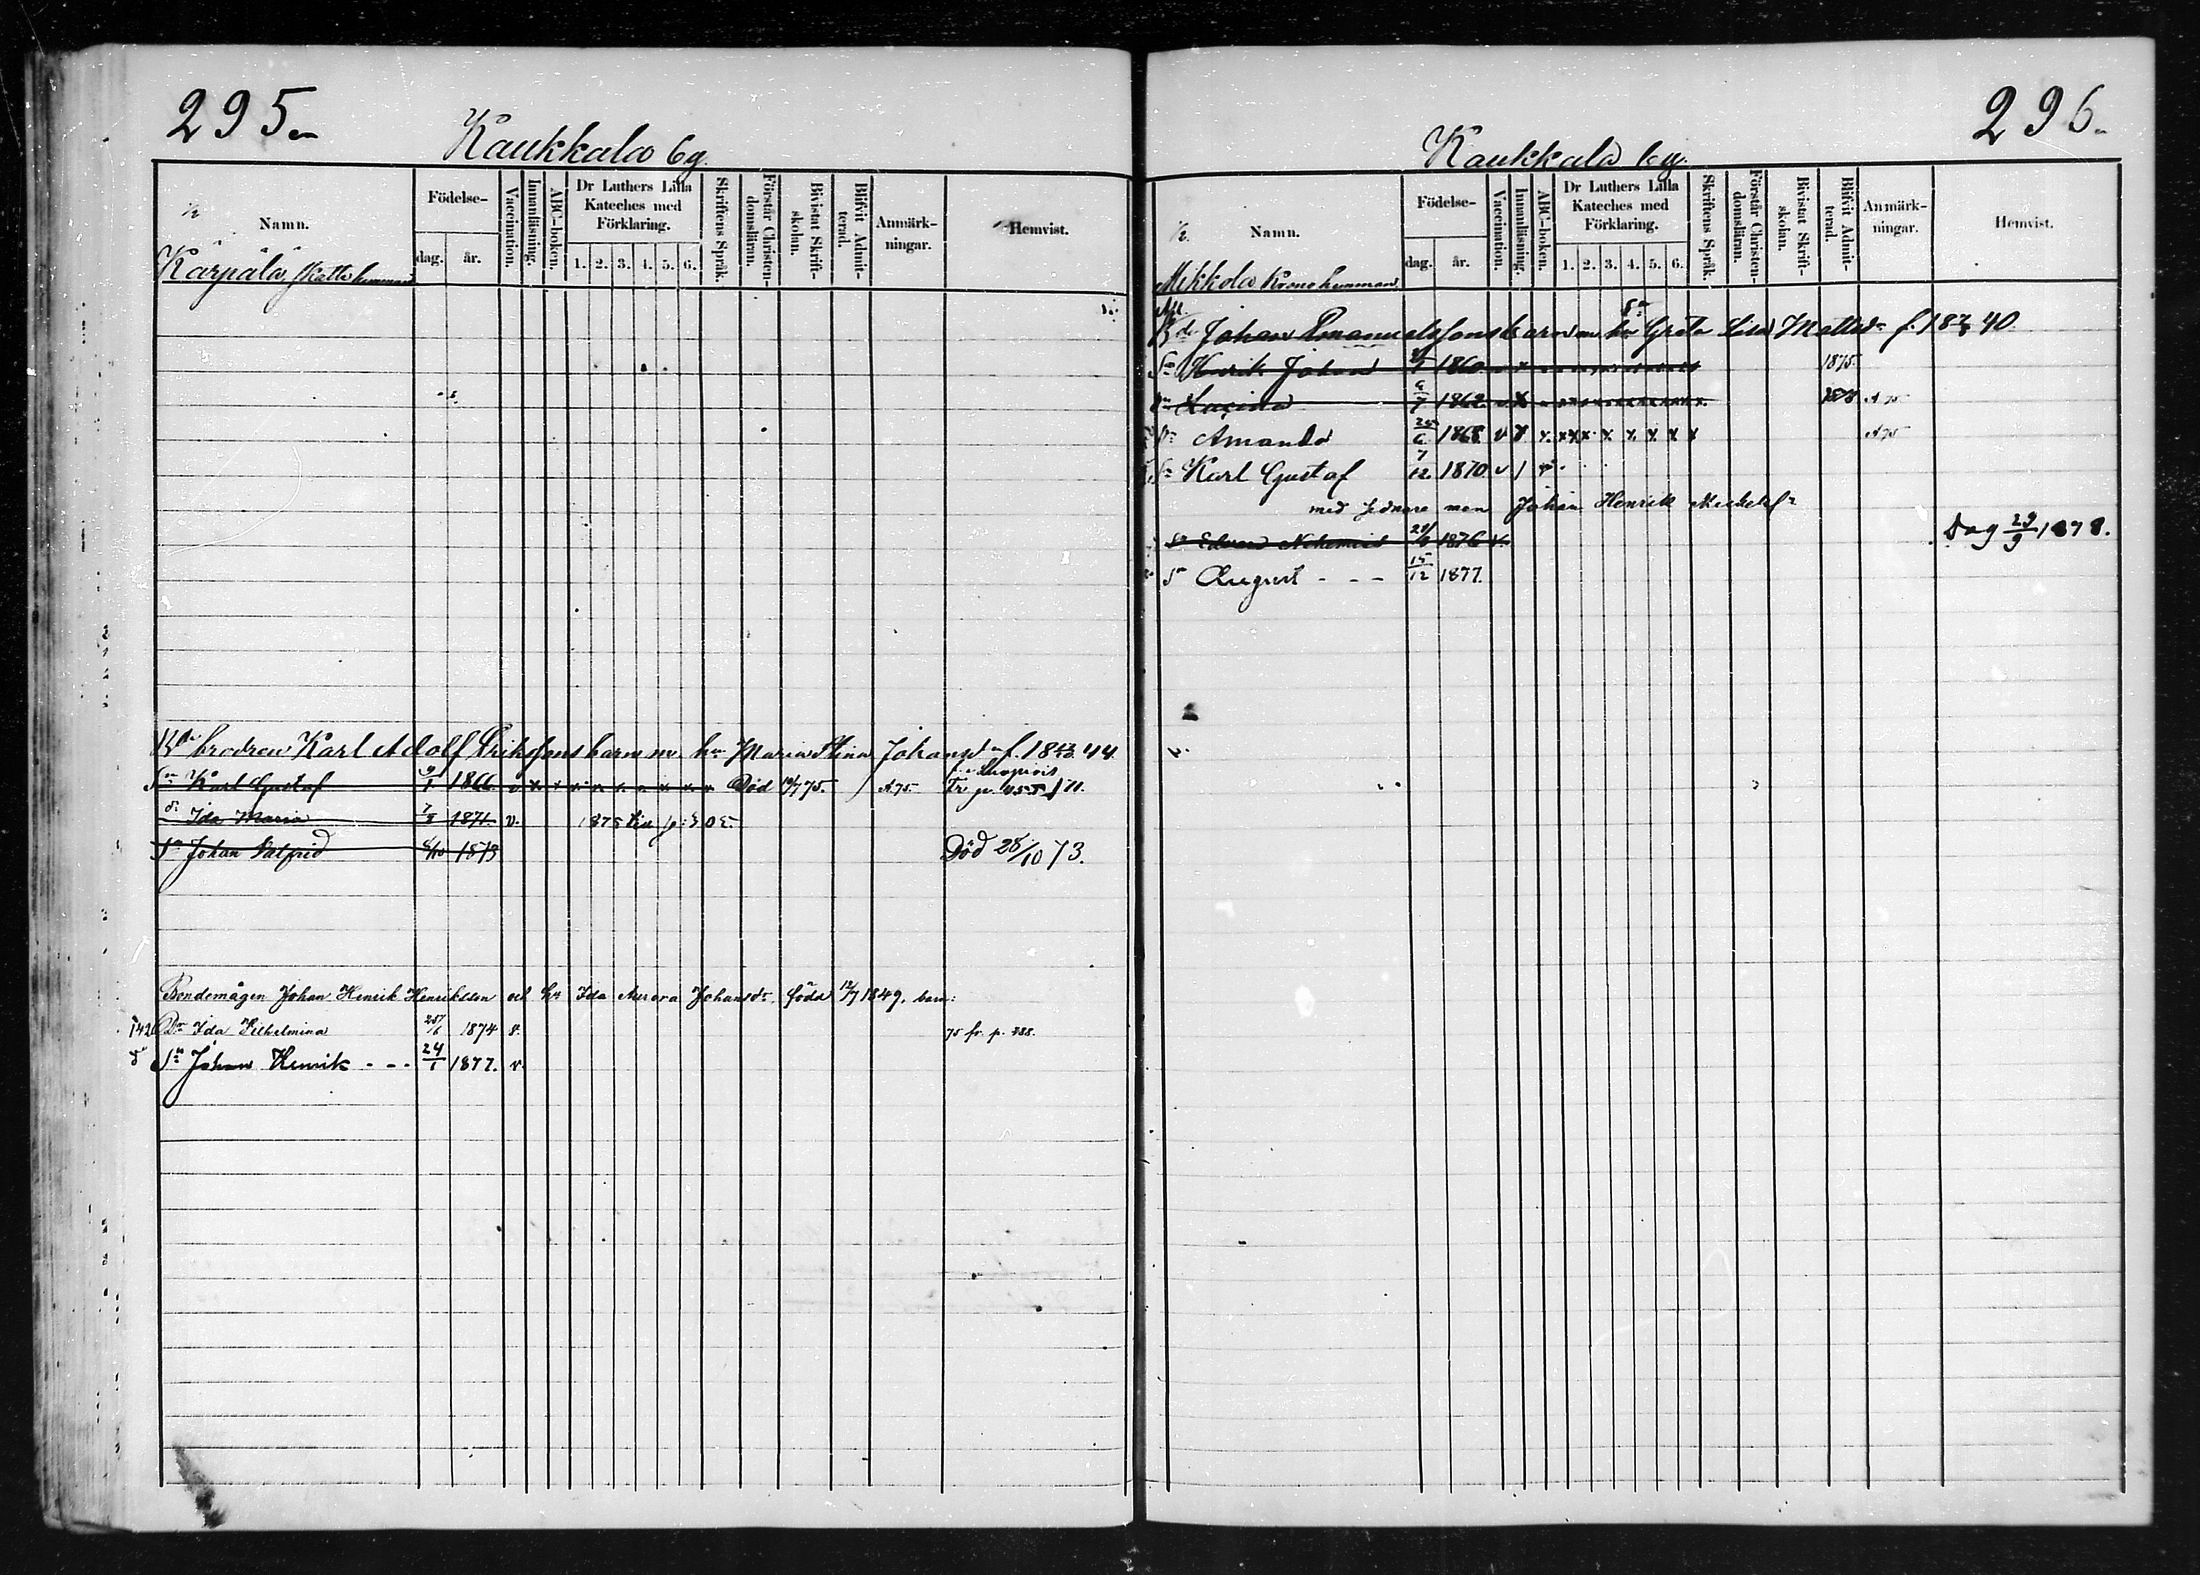 295
Kaukkala by.
Namn.
Födelse-
dag.
år.
Vaccination.
Innanläsning.
ABC-boken.
Dr Luthers Lilla
Kateches med
Förklaring.
1. 2. 3. 4. 5. 6.
Skriftens Språk.
Förstår Christen-
domsläran.
Bivistat Skrift-
skolan.
Blifvit Admit-
terad.
Anmärk-
ningar.
Hemvist.
Kärpälä, Skatte hemman
brodren Karl Adolf Erikssons barn m. hu Maria Stina Johansdr f. 18 44
Sn Karl Gustaf 9/1 1866 v Död 75. A 75
dr Ida Maria 1871. v. 1875
Sn Johan 1873 Död 28/10 73.
Bondemågen Johan Henrik Henriksson och hu Ida Aurora Johansdr född 12/7 1849. barn:
Dr Ida Vilhelmina 1874 75 fr. p. 288.
Sn Johan Henrik - - - 24/1 1877. v.
296.
Kaukkala by.
Namn.
Födelse-
dag.
år.
Vaccination.
Innanläsning.
ABC-boken.
Dr Luthers Lilla
Kateches med
Förklaring.
1. 2. 3. 4. 5. 6.
Skriftens Språk.
Förstår Christen-
domsläran.
Bivistat Skrift-
skolan.
Blifvit Admit-
terad.
Anmärk-
ningar.
Hemvist.
Mikkola Krono hemman
Johan Emanuelssons barn m. hu Greta Lisa Mattsdr f. 18 40
Sn Henrik Johan 1860 1875.
1862 A 75
dr Amanda 1868 v x x x x x x x x A 75
Sn Karl Gustaf 7/12 1870 v
med sednare man Johan Henrik Michelss
Sn Edvard 1876 v. Dog 29/9 1878.
Sn August - - - 15/12 1877.